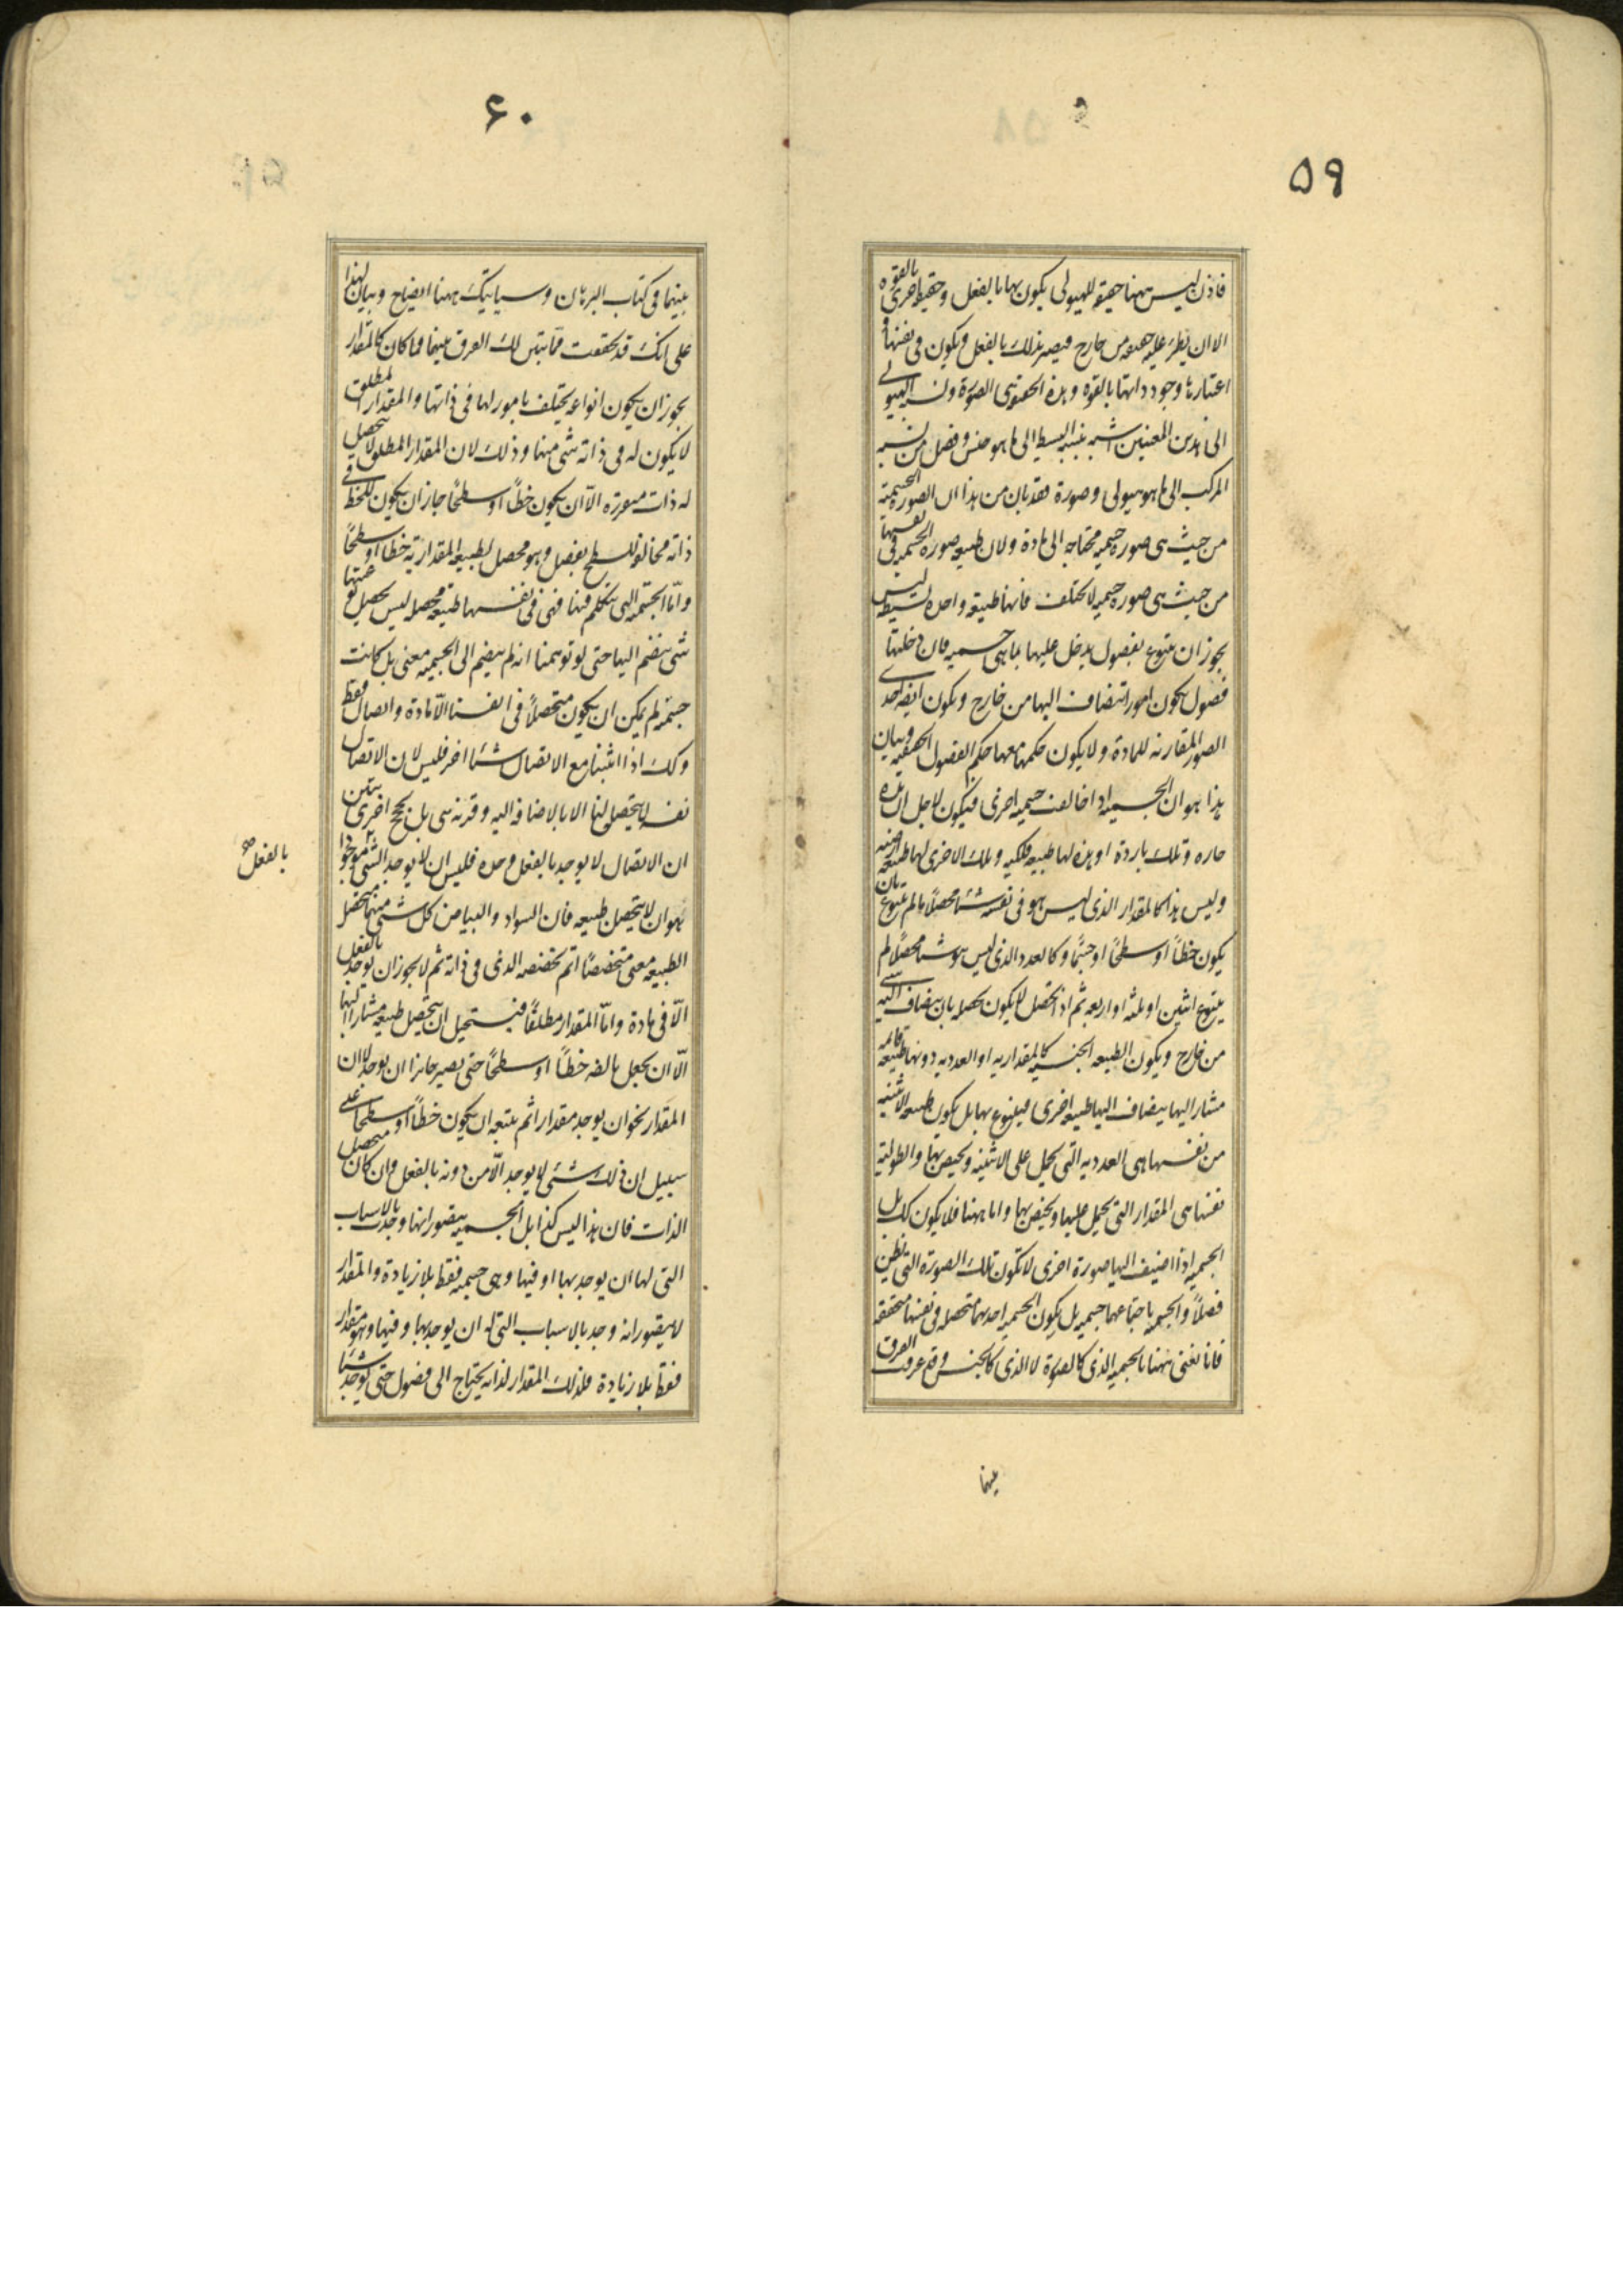 ۵۹
فاذن ليس ههنا حقيقة للهيولى يكون بها بالفعل وحقيقة اخرى بالقوه
الا ان يطرء عليه حقيقه من خارج فيصير بذلك بالفعل ويكون فى نفسها و
اعتبارنا وجود ذاتها بالقوه وهذه الحقيقه هى الصورة ونسبة الهيولى
الى هذين المعنيين اشبه بنسبه البسيط الى ما هو جنس وفصل من نسبه
المركب الى ما هو هيولى وصورة فقد بان من هذا ان الصورة الجسميه
من حيث هى صورة جسميه محتاجه الى مادة ولان طبيعه صورة الجسميه فى نفسها
من حيث هى صورة جسميه لا تختلف فانها طبيعه واحده بسيطه ليس
يجوز ان يتنوع بفصول يدخل عليها بما هى جسميه فان دخلتها
فصول يكون امورا تنضاف اليها من خارج ويكون ايضا احدى
الصور المقارنه للمادة ولا يكون حكمها معها حكم الفصول الحقيقيه وبيان
هذا هو ان الجسميه اذا خالفت جسميه اخرى فيكون لاجل ان هذه
حاره وتلك باردة او هذه لها طبيعه فلكيه وتلك الاخرى لها طبيعه ارضيه
وليس هذا كالمقدار الذى ليس هو فى نفسه شيئا محصلا ما لم يتنوع بان
يكون خطا او سطحا او جسما وكالعدد الذى ليس هو شيئا محصلا ما لم
يتنوع اثنين او ثلثه او اربعه ثم اذا تحصل لا يكون تحصله بان ينضاف اليه شى
من خارج ويكون الطبيعه الجنسيه كالمقداريه او العدديه دونها طبيعه قائمه
مشار اليها ينضاف اليها طبيعه اخرى فيتنوع بها بل يكون طبيعه الاثنينيه
من نفسها هى العدديه التى تحمل على الاثنينيه ويختص بها والطوليه
نفسها هى المقدار التى يحمل عليها ويختص بها واما ههنا فلا يكون كك بل
الجسميه اذا اضيف اليها صورة اخرى لا تكون تلك الصورة التى تظن
فصلا والجسميه باجتماعهما جسميه بل يكون الجسميه احديهما متحصله فى نفسها متحققه
فانا نعنى ههنا بالجسميه الذى كالصورة لا الذى كالجنس وقد عرفت الفرق
بينهما
۶۰
بينهما فى كتاب البرهان وسياتيك ههنا ايضاح وبيان لهذا
على انك قد تحققت مما تبين لك الفرق بينهما فما كان كالمقدار
يجوز ان يكون انواعه يختلف بامور لها فى ذاتها والمقدار المطلق
لا يكون له فى ذاته شى منها وذلك لان المقدار المطلق لا يتحصل
له ذات متقرره الا ان يكون خطا او سطحا جاز ان يكون للخط فى
ذاته مخالفه للسطح بفصل وهو محصل لطبيعه المقداريه خطا او سطحا
واما الجسميه التى نتكلم فيها فهى فى نفسها طبيعه محصله ليس تحصيل نوعيتها
شى ينضم اليها حتى لو توهمنا انه لم ينضم الى الجسميه معنى بل كانت
جسميه لم يمكن ان يكون متحصلا فى انفسنا الا مادة واتصال فقط
وكك اذا اثبتنا مع الاتصال شيئا اخر فليس لان الاتصال
نفسه لا يتحصل لنا الا بالاضافه اليه وقرنه شى بل بحجج اخرى يتبين
ان الاتصال لا يوجد بالفعل وحده فليس ان لا يوجد الشى موجودا
بالفعل صح
هو ان لا يتحصل طبيعه فان السواد والبياض كل شى منهما متحصل
الطبيعه معنى متخصصا اتم تخصصه الذى فى ذاته ثم لا يجوز ان يوجد بالفعل
الا فى مادة واما المقدار مطلقا فيستحيل ان يتحصل طبيعه مشارا اليها
الا ان يجعل بالضه خطا او سطحا حتى يصير جائزا ان يوجد لا ان
المقدار يجوز ان يوجد مقدارا ثم يتبعه ان يكون خطا او سطحا على
سبيل ان ذلك شى لا يوجد الا من دونه بالفعل وان كان متحصل
الذات فان هذا ليس كذا بل الجسميه يتصور انها وجدت بالاسباب
التى لها ان يوجد بها او فيها وهى جسميه فقط بلا زيادة والمقدار
لا يتصور انه وجد بالاسباب التى له ان يوجد بها وفيها وهو مقدار
فقط بلا زيادة فلذلك المقدار لذاته يحتاج الى فصول حتى يوجد شيئا